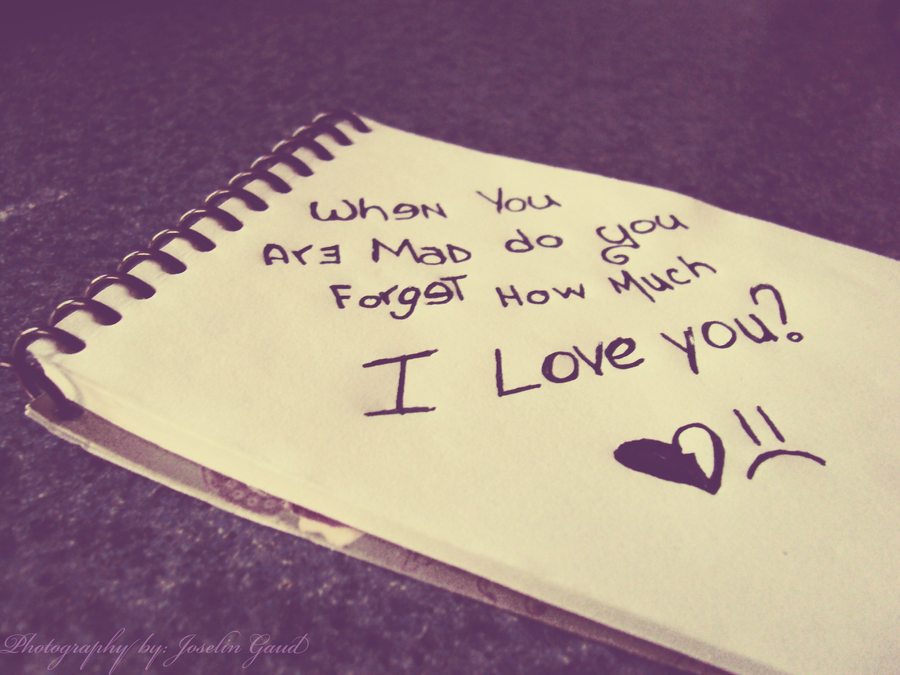 When You
Are Mad do you
Forget How Much
I Love you?
Photography by: Joselin Gaud